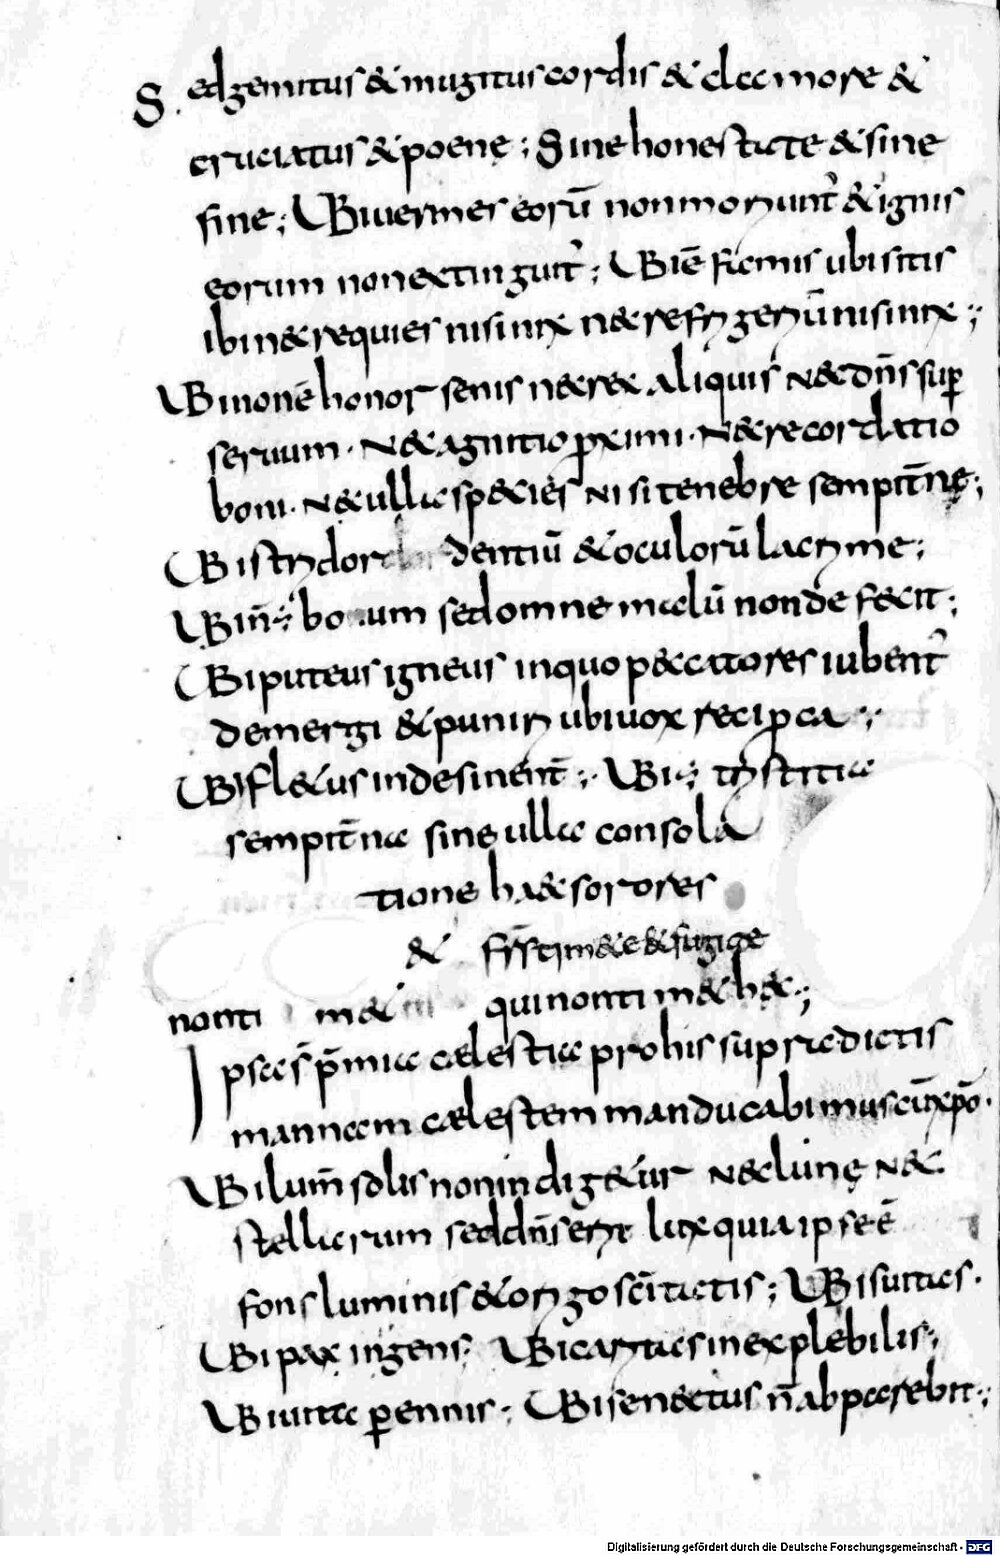 Sed gemitus & mugitus cordis & clamore &
cruciatus & poenę; Sine honestate & sine
fine; Ubi uermes eorū non moriunt̃ & ignis
eorum non extinguit̃; Ubi ē famis ubi sitis
ibi n& requies nisi nix n& refrigeriū nisi nix;
Ubi non ē honor senis n& rex aliquis N& dñs sup̱
seruum. N& agnitio proximi. N& recordatio
boni. N& ulla sp&ies Nisi tenebre sempit̄nę;
Ubi stridor dentiū & oculorū lacrime;
Ubi ñ ÷ bonum sed omne malū non defecit;
Ubi puteus igneus in quo peccatores iubent̃
demergi & puniri ubi uox reciproca;
Ubi fl&us indesinent̄; Ubi ÷ tristitia
sempit̄na sine ulla consola
tione h& sorores
& fr̄s tim&e & fugite
non ti m& qui non tim& h&;
Ipsa s̄ p̄mia cælestia pro his supradictis
mannam cælestem manducabimus cū xp̄o.
Ubi lum̄ solis non indig&ur N& lunę N&
stellarum sed dñs erit lux quia ipse ē
fons luminis & origo sc̄itatis; Ubi suauas.
Ubi pax ingens; Ubi caritas inexplebilis;
Ubi uita p̱ennis. Ubi senectus ñ abparebit;